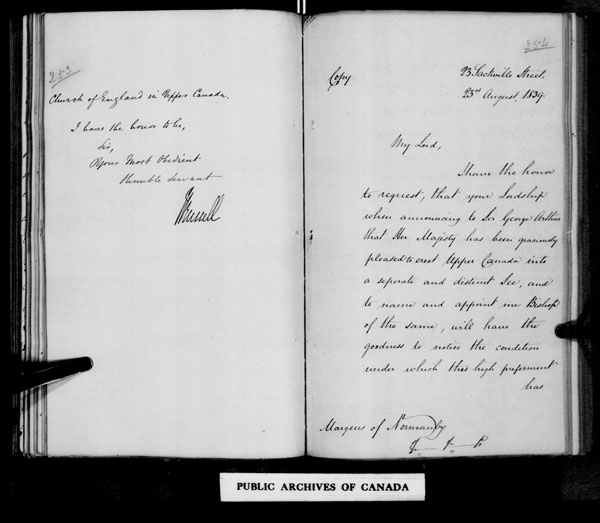 253
Church of England in Upper Canada.
I have the honor to be,
Sir,
Your Most Obedient
Humble Servant
JRussell
254
Copy
23 Sackville Street,
23rd August, 1839.
My Lord,
I have the honor
to request, that your Lordship
when announcing to Sir George Arthur
that Her Majesty has been graciously
pleased to erect Upper Canada into
a seperate and distinct See, and
to name and appoint me Bishop
of the same, will have the
goodness to notice the condition
under which this high preferment
has
Marquis of Normanby
PUBLIC ARCHIVES OF CANADA